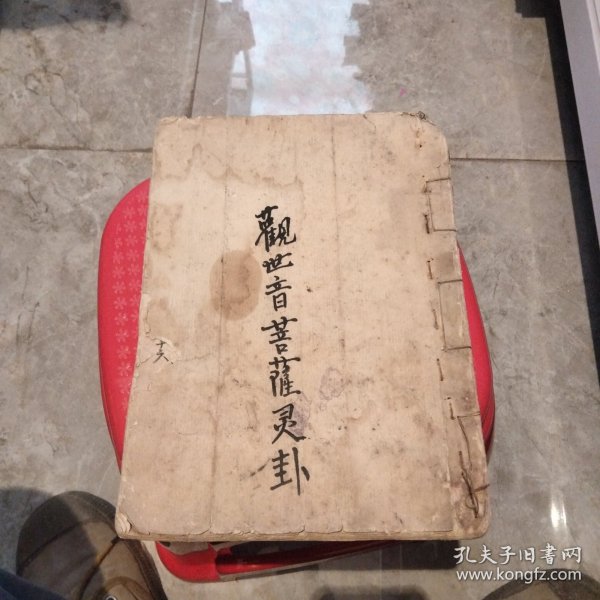 觀世音菩薩灵卦
孔夫子旧書网
www.kongfz.com